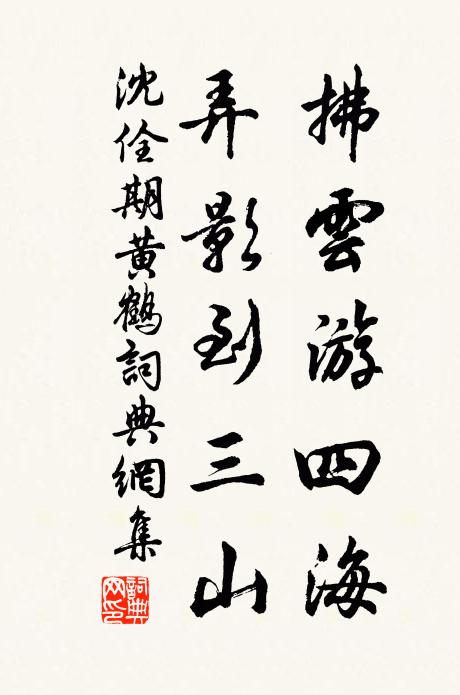 拂雲游四海
弄影到三山
沈佺期黃鶴詞典網集
詞典網印